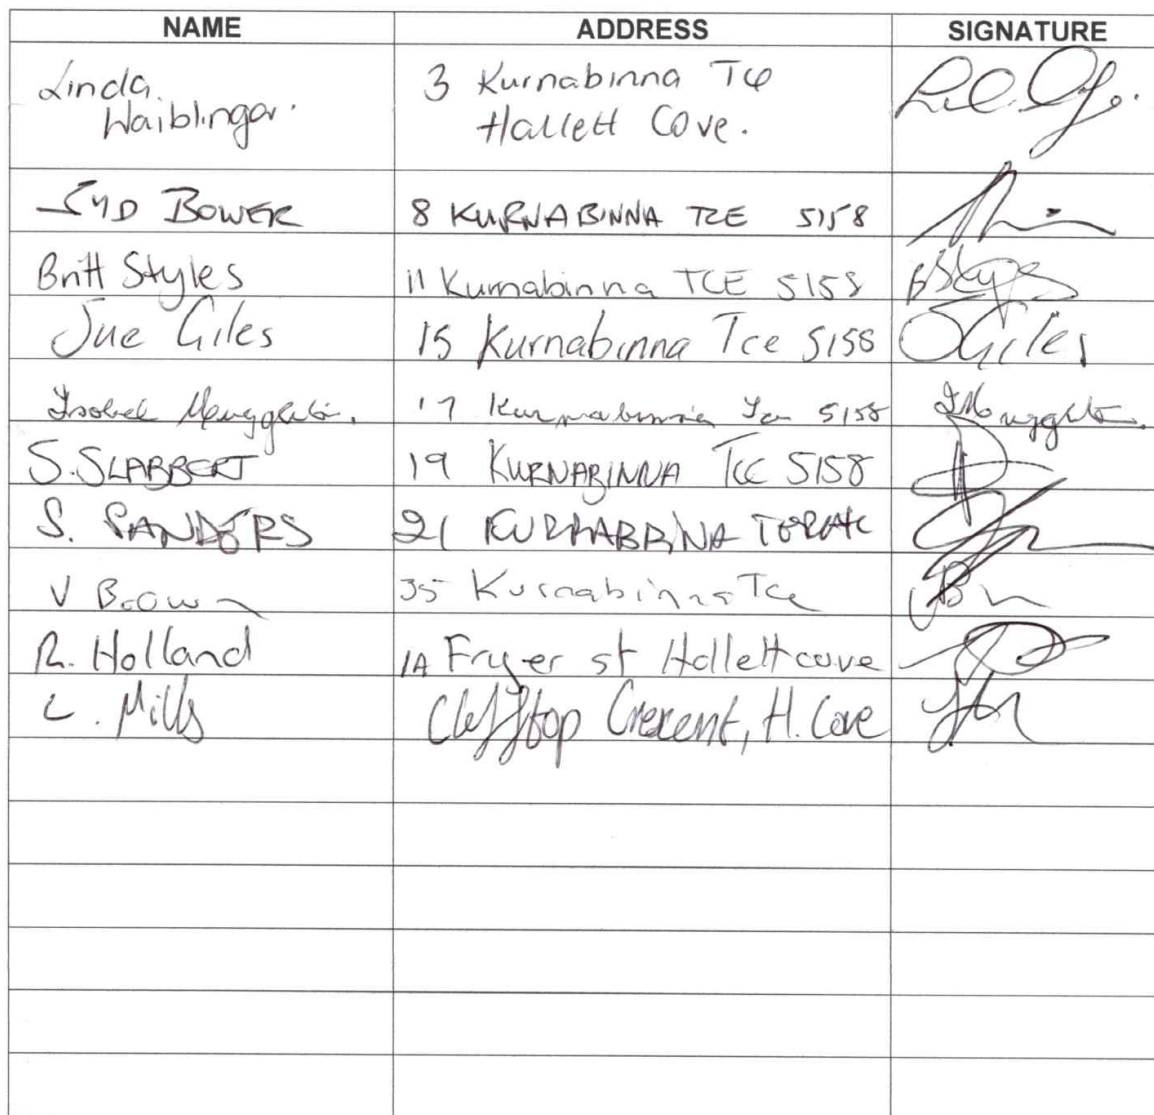 NAME ADDRESS SIGNATURE
Linda 3 Kurnabinna Tce
Waiblinger. Hallett Cove.
SYD BOWER 8 KURNABINNA TCE 5158
Britt Styles 11 Kurnabinna TCE 5158 BStyles
Sue Giles 15 Kurnabinna Tce 5158 SGiles
Isobel 17 Kurnabinna Tce 5158
S. SLABBERT 19 KURNABINNA TCE 5158
S. SANDERS 21 KURNABBRINA
V Brown 35 Kurnabinna Tce
R. Holland 1A Fryer st Hallett cove
L. Mills Clifftop Crescent, H. Cove